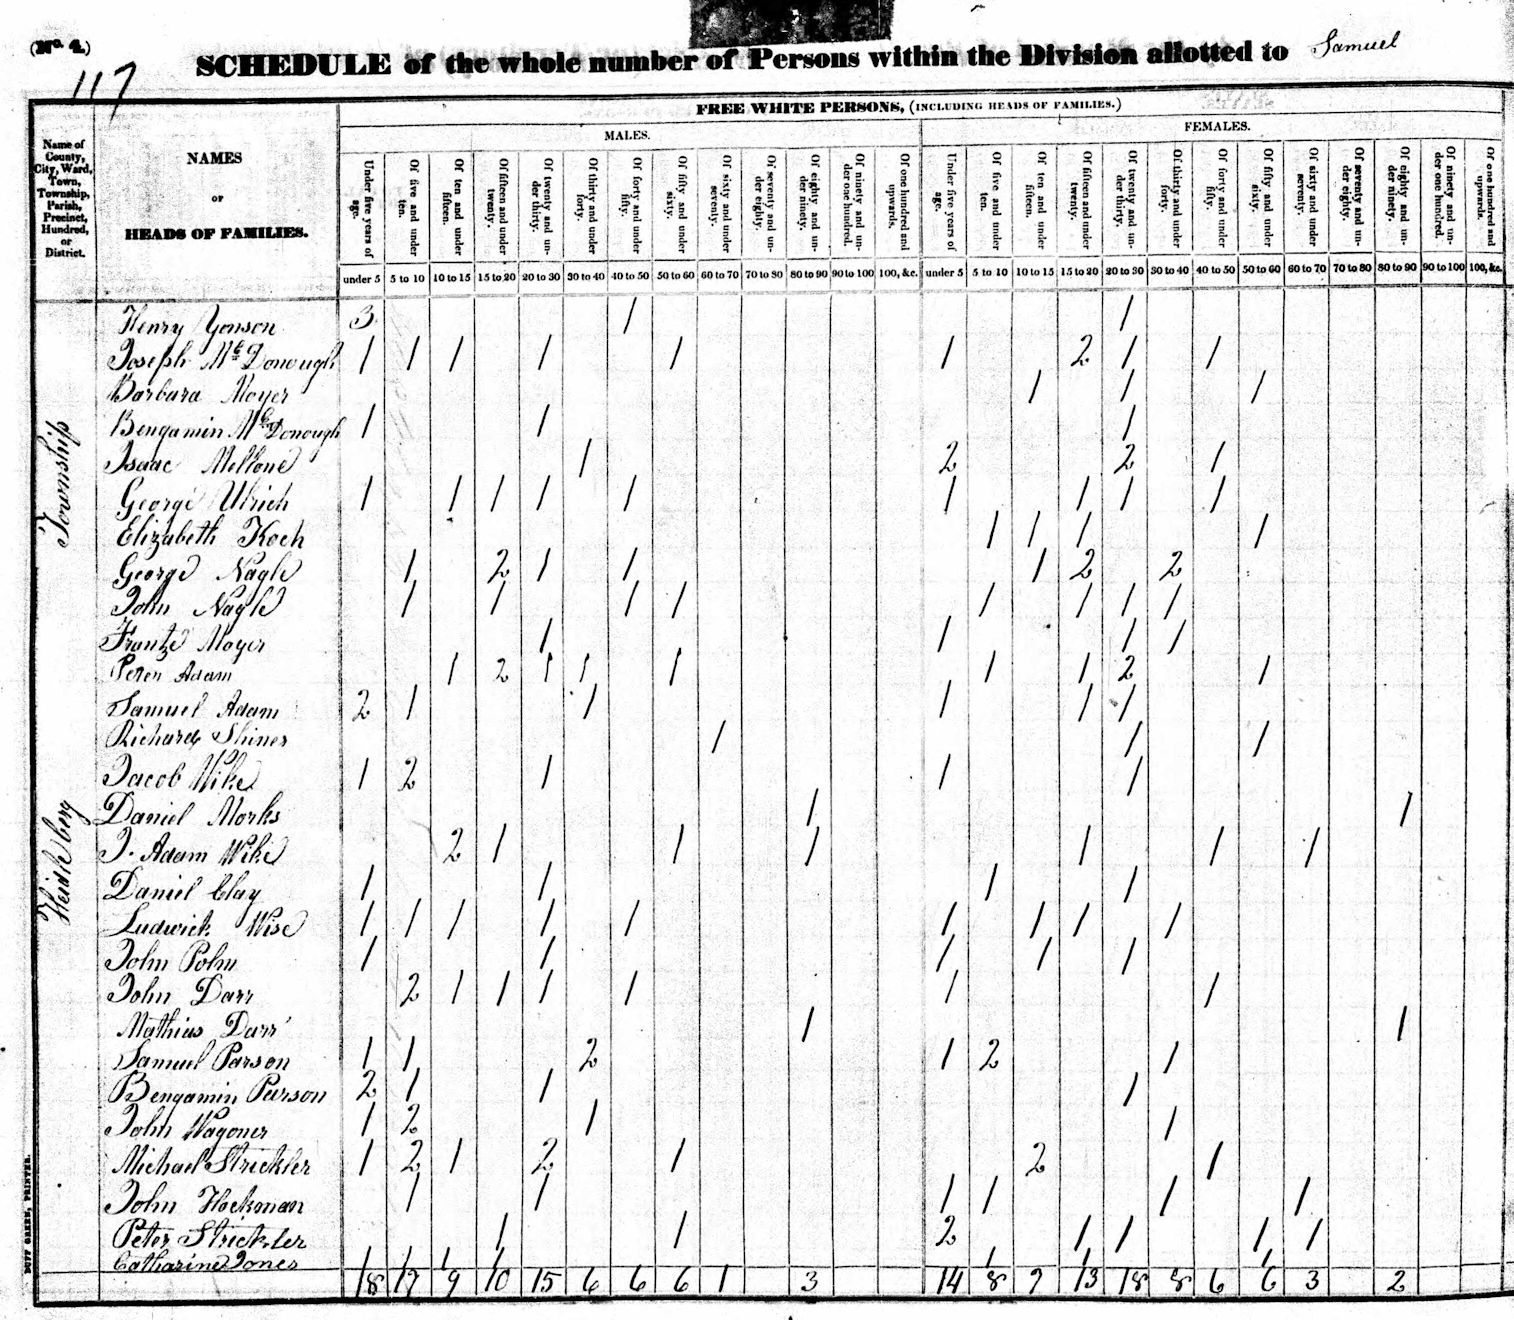 (No. 4.)
117
SCHEDULE of the whole number of Persons within the Division allotted to Samuel
FREE WHITE PERSONS, (INCLUDING HEADS OF FAMILIES.)
MALES. FEMALES.
Name of County, City, Ward, Town, Township, Parish, Precinct, Hundred, or District.
NAMES
OF
HEADS OF FAMILIES.
Under five years of age. Of five and under ten. Of ten and under fifteen. Of fifteen and under twenty. Of twenty and under thirty. Of thirty and under forty. Of forty and under fifty. Of fifty and under sixty. Of sixty and under seventy. Of seventy and under eighty. Of eighty and under ninety. Of ninety and under one hundred. Of one hundred and upwards. Under five years of age. Of five and under ten. Of ten and under fifteen. Of fifteen and under twenty. Of twenty and under thirty. Of thirty and under forty. Of forty and under fifty. Of fifty and under sixty. Of sixty and under seventy. Of seventy and under eighty. Of eighty and under ninety. Of ninety and under one hundred. Of one hundred and upwards.
under 5 5 to 10 10 to 15 15 to 20 20 to 30 30 to 40 40 to 50 50 to 60 60 to 70 70 to 80 80 to 90 90 to 100 100, &c. under 5 5 to 10 10 to 15 15 to 20 20 to 30 30 to 40 40 to 50 50 to 60 60 to 70 70 to 80 80 to 90 90 to 100 100, &c.
Heidleberg Township
Henry Yonson 3 1 1
Joseph McDonough 1 1 1 1 1 1 2 1 1
Barbara Moyer 1 1 1
Bengamin McDonough 1 1 1
Isaac Mellone 1 2 2 1
George Ulrich 1 1 1 1 1 1 1 1 1
Elizabeth Koch 1 1 1 1
George Nagle 1 2 1 1 1 2 2
John Nagle 1 1 1 1 1 1 1 1
Frantz Moyer 1 1 1 1
Peter Adam 1 2 1 1 1 1 1 2 1
Samuel Adam 2 1 1 1 1 1
Richard Shiner 1 1 1
Jacob Wike 1 2 1 1 1
Daniel Morks 1 1
J. Adam Wike 2 1 1 1 1 1 1
Daniel Clay 1 1 1 1
Ludwick Wise 1 1 1 1 1 1 1 1 1
John Pohn 1 1 1 1 1
John Darr 2 1 1 1 1 1 1
Mathias Darr 1 1
Samuel Parson 1 1 2 1 2 1
Bengamin Parson 2 1 1 1
John Wagoner 1 2 1 1
Michael Strickler 1 2 1 2 1 2 1
John Hockonan 1 1 1 1 1 1
Peter Strickler 1 1 2 1 1 1 1
Catharine Jones 1 1 1 1 1 1 1
18 17 9 10 15 6 6 6 1 3 14 8 7 13 18 8 6 6 3 2
DUFF GREEN, PRINTER.